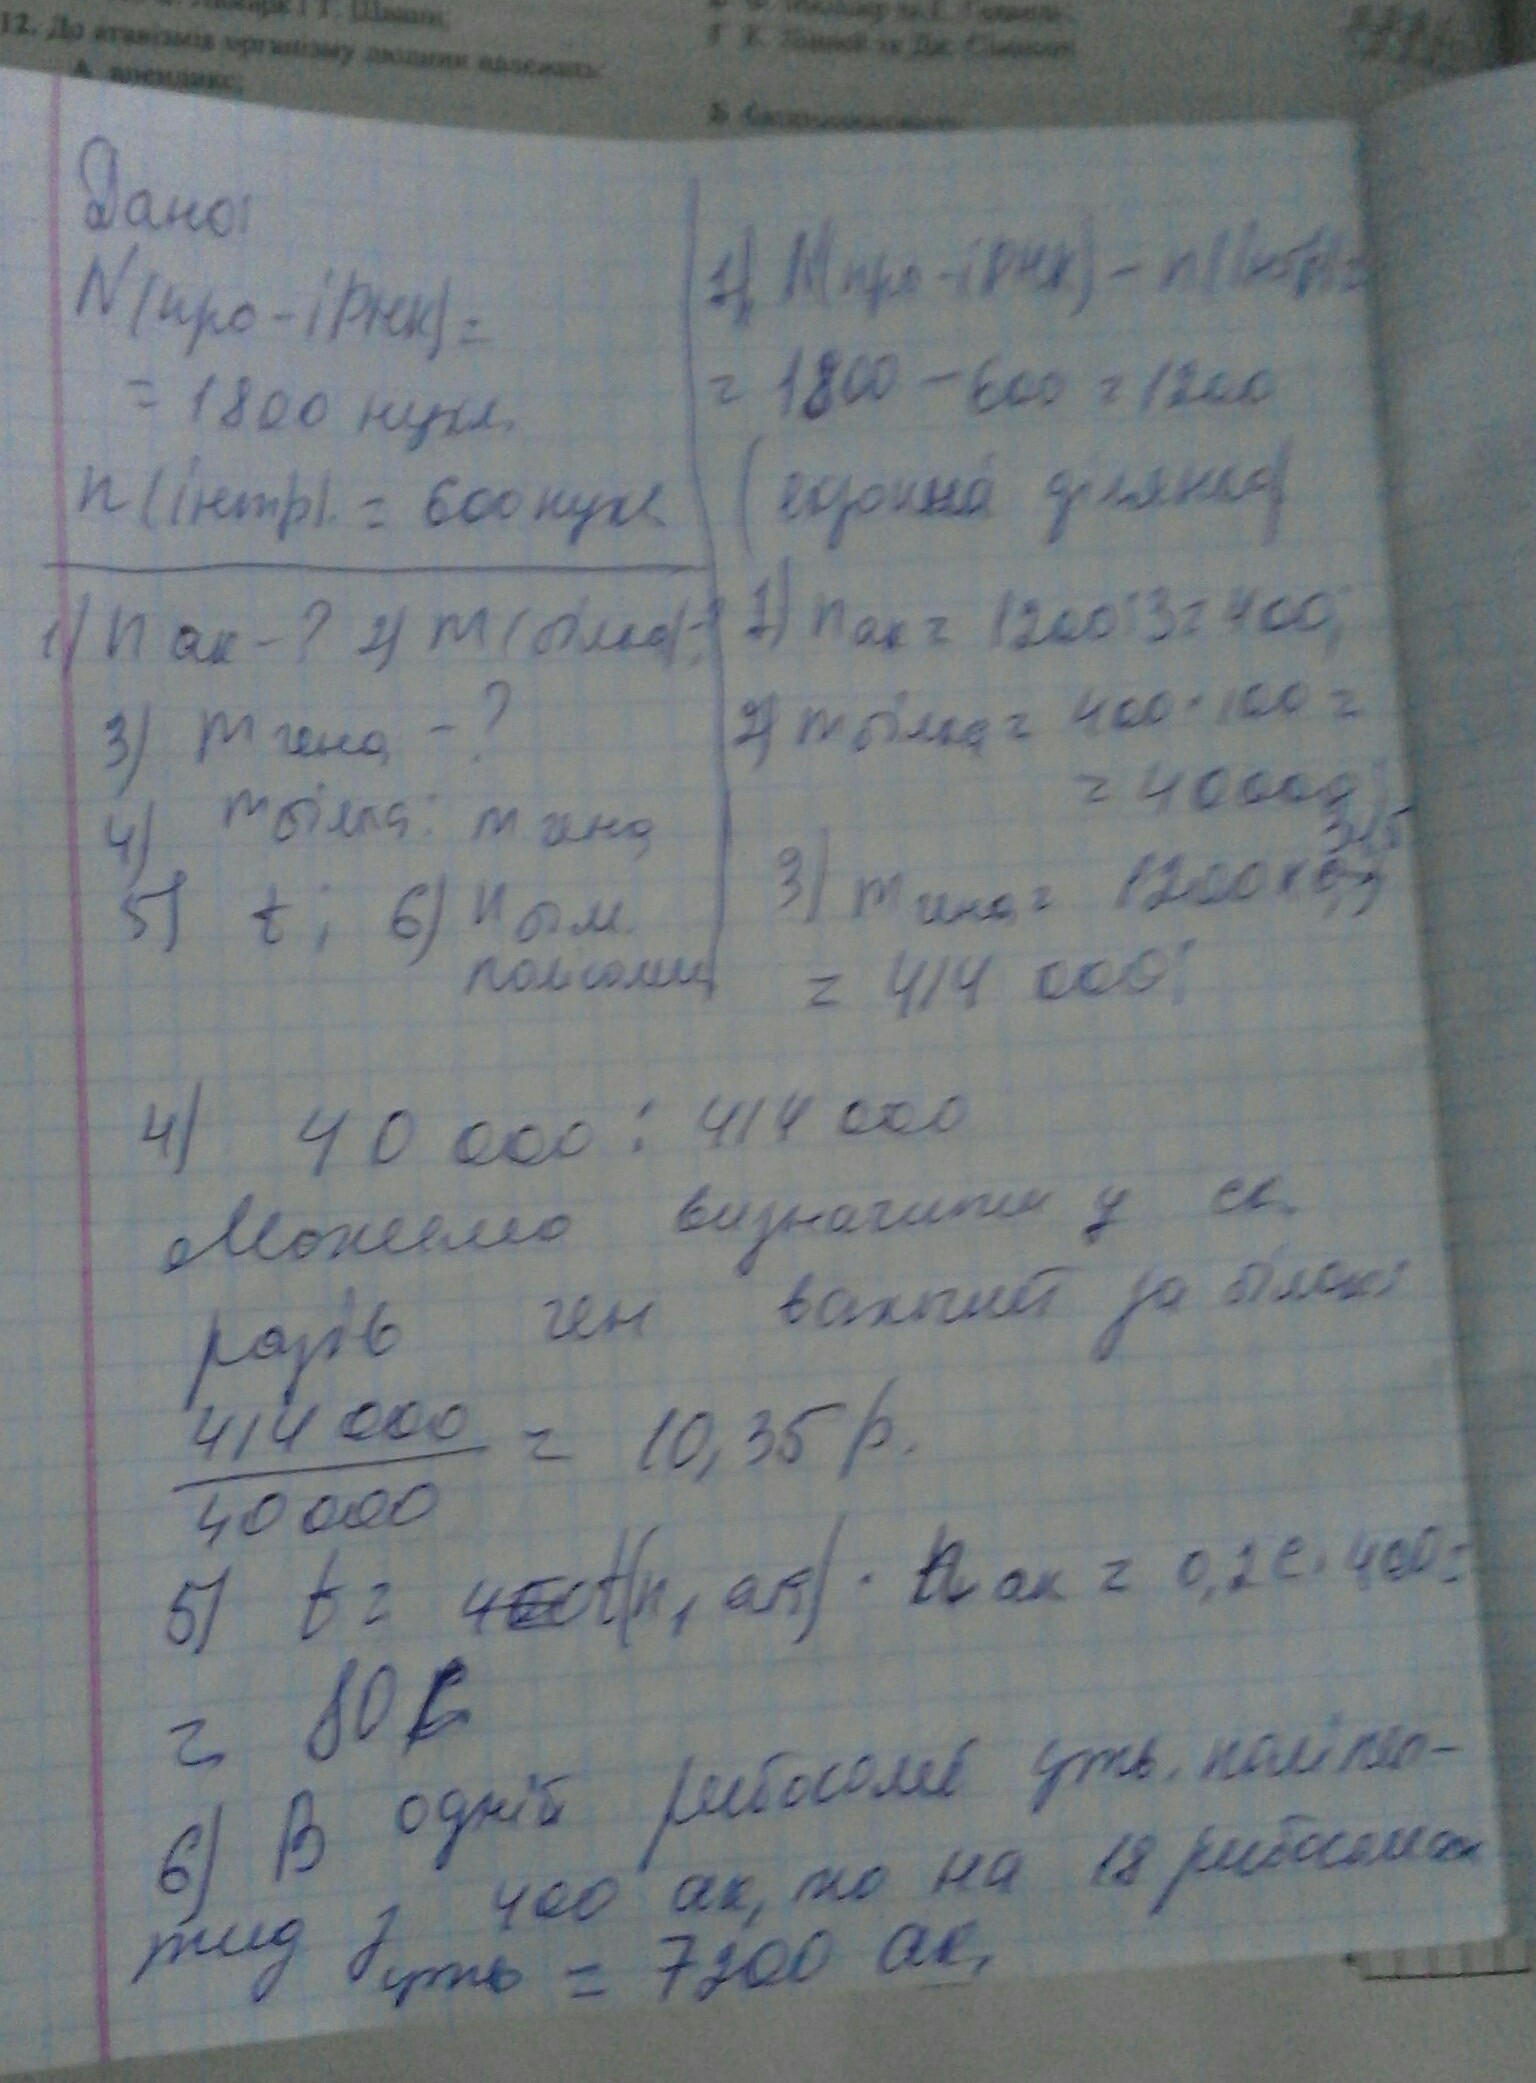 12. До атавізмів організму людини належать:
А апендикс;
Дано:
N(про-іРНК)=
= 1800 нукл.
n(інтр). = 600 нукл
1) n ак - ? 2) m(білка)-?
3) m гена - ?
4) m білка: m гена
5) t; 6) n
полісоми
1) N(про-іРНК) - n(інтр)=
= 1800 - 600 = 1200
1) n ак = 1200:3=400;
2) m білка = 400·100 =
= 40000
3) m гена = 1200×
= 414 000;
4) 40 000 : 414 000
Можемо визначити у ск.
разів ген важчий за білок:
414 000
40 000
= 10,35 р.
5) t = · n ак = 0,2с·400=
= 80с
6) В одній рибосомі утв. поліпеп-
тид з 400 ак, то на 18 рибосомах
утв = 7200 ак.